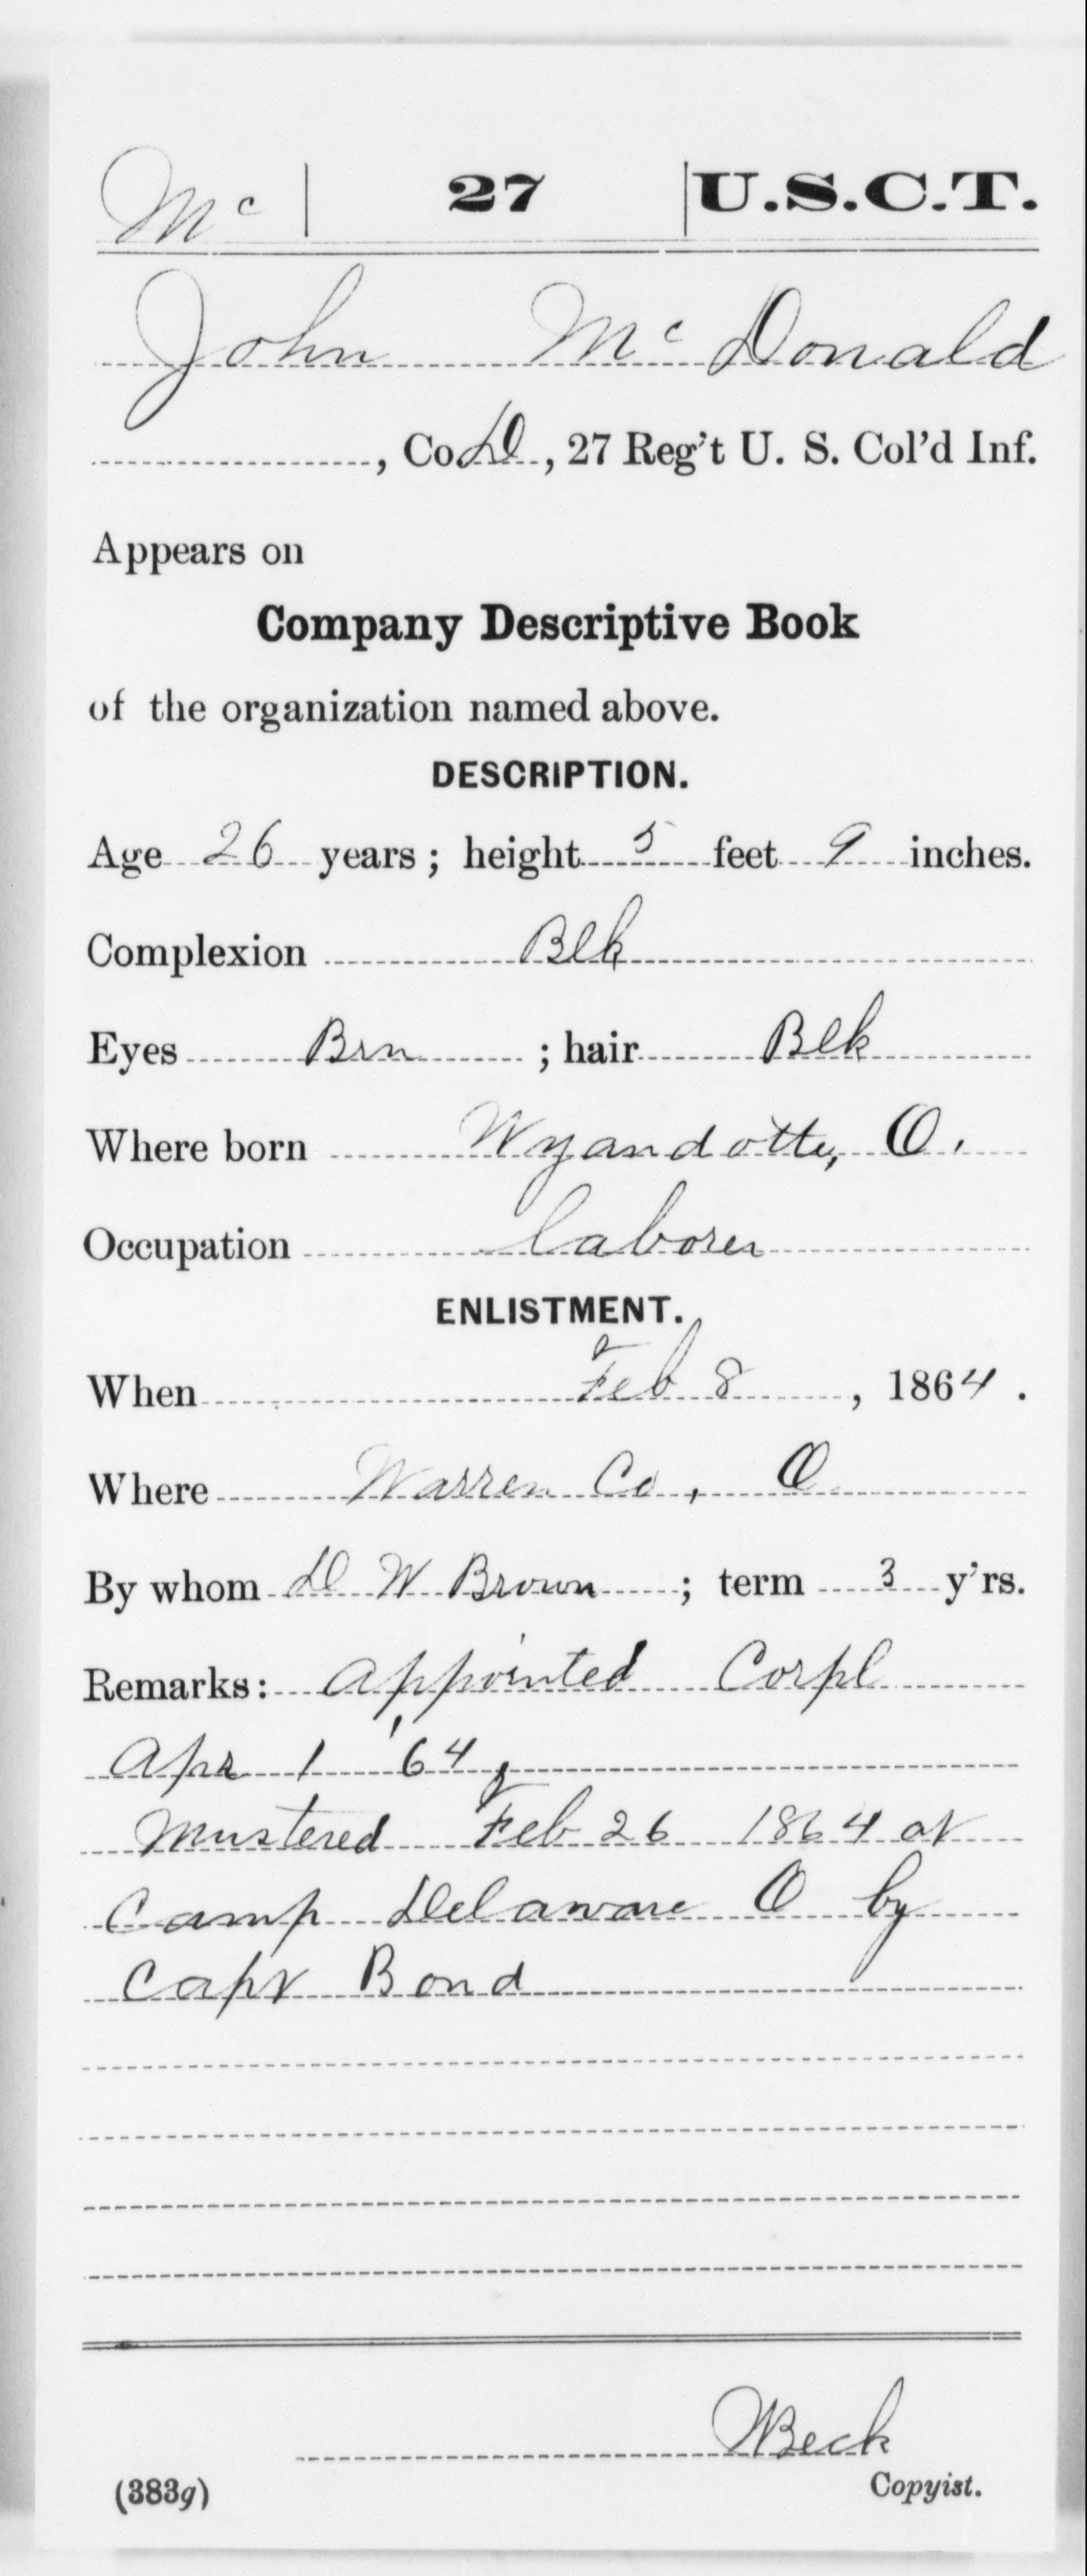 Mc 27 U.S.C.T.
John McDonald
, Co. D, 27 Reg't U. S. Col'd Inf.
Appears on
Company Descriptive Book
of the organization named above.
DESCRIPTION.
Age 26 years; height 5 feet 9 inches.
Complexion Blk
Eyes Brn ; hair Blk
Where born Wyandotte, O.
Occupation laborer
ENLISTMENT.
When Feb 8, 1864.
Where Warren Co, O
By whom D W Brown; term 3 y'rs.
Remarks: Appointed Corpl
Apr 1 '64
Mustered Feb 26 1864 at
Camp Delaware O by
Capt Bond
Beck
(383g) Copyist.